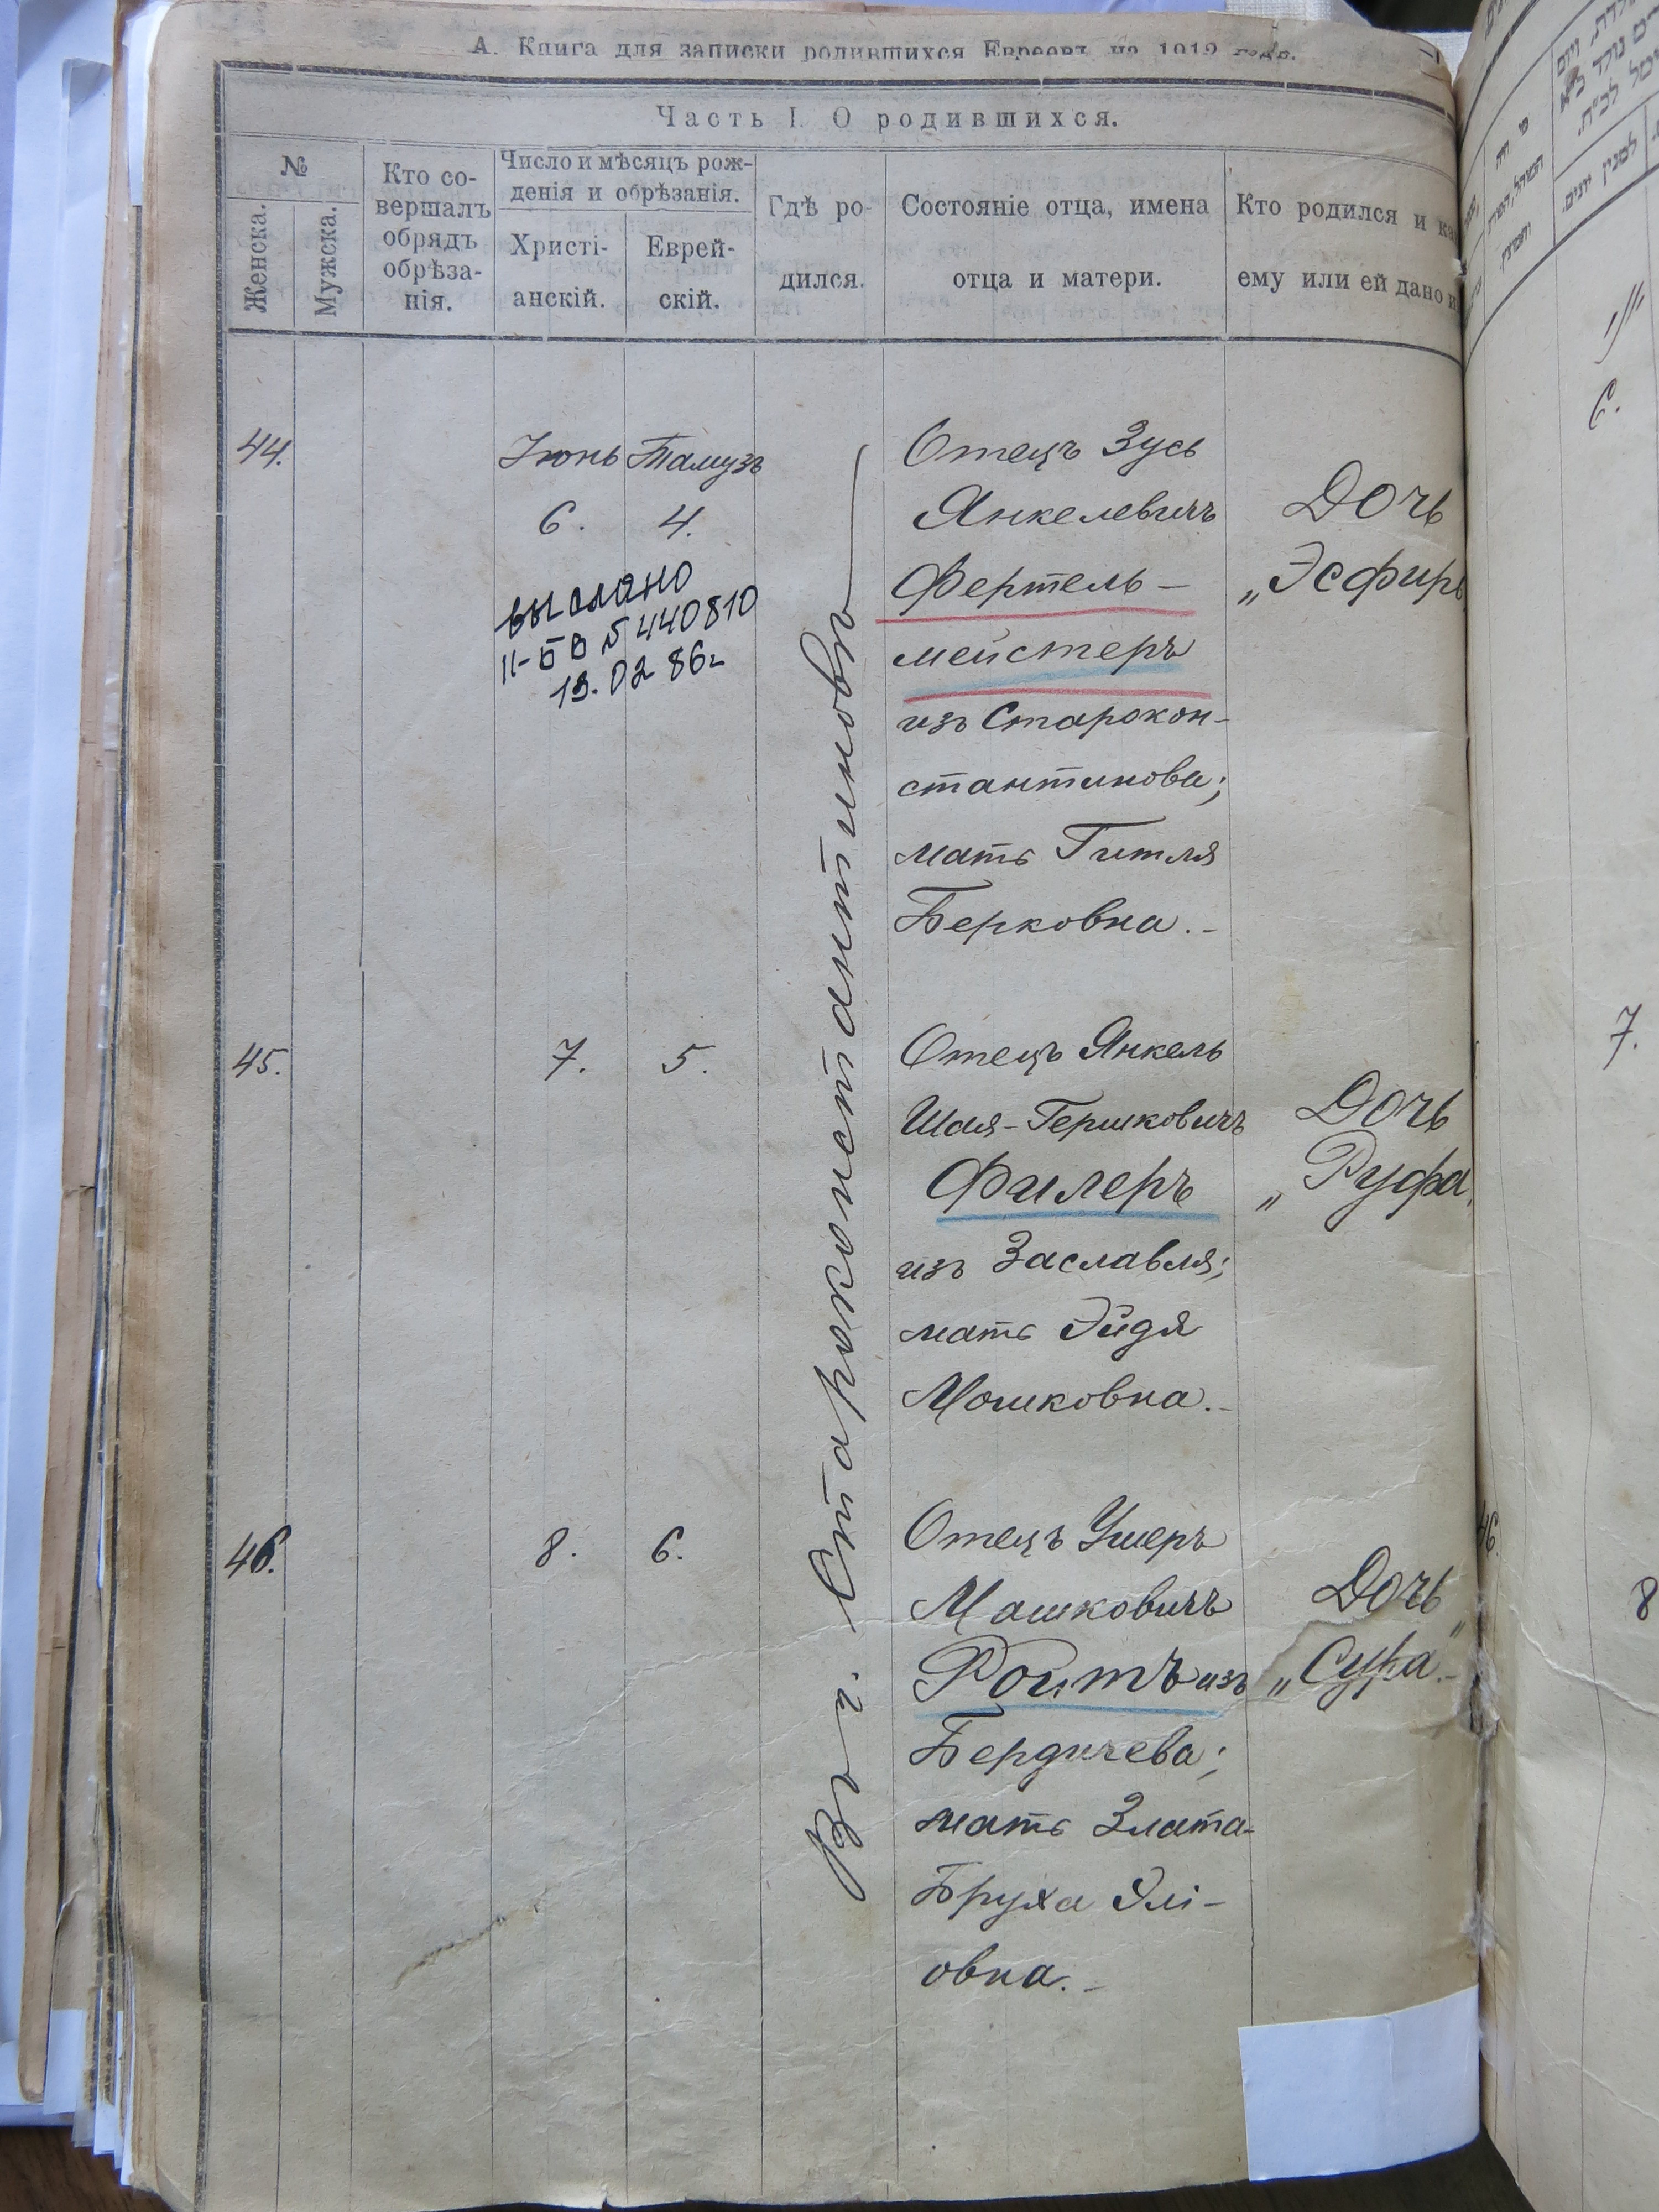 А. Книга для записки родившихся Евреевъ на 1912 годъ.
Часть I. О родившихся.
№
Женска.
Мужска.
Кто со-
вершалъ
обрядъ
обрѣза-
нія.
Число и мѣсяцъ рож-
денія и обрѣзанія.
Христі-
анскій.
Еврей-
скій.
Гдѣ ро-
дился.
Состояніе отца, имена
отца и матери.
Кто родился и
ему или ей дано
44.
Іюнь Тамузъ
6. 4.
выслано
II-БВ № 440810
13.02 86г
Въ г. Староконстантиновъ
Отецъ Зусь
Янкелевичъ
Фертель-
мейстеръ
изъ Старокон-
стантинова;
мать Гитля
Берковна.-
Дочь
„Эсфирь
45.
7. 5.
Отецъ Янкель
Шая-Гершковичъ
Филеръ
изъ Заславля;
мать Эйдя
Мошковна.-
Дочь
„Руфа
46.
8. 6.
Отецъ Ушеръ
Машковичъ
Роитъ изъ
Бердичева;
мать Злата-
Бруха Элі-
овна.-
Дочь
„Сура“.-
6.
7.
46.
8